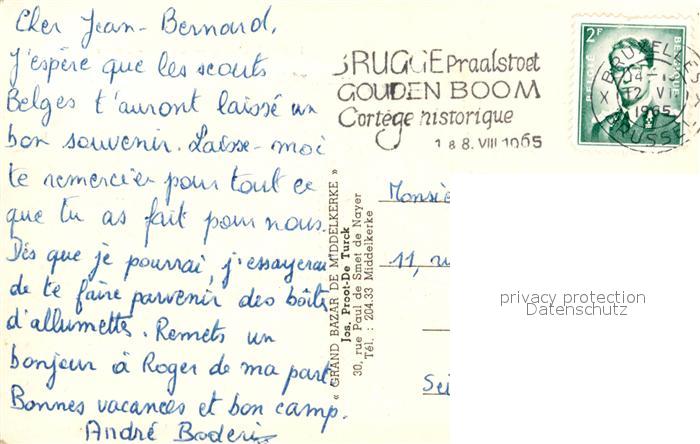 Cher Jean-Bernard,
J'espère que les scouts
Belges t'auront laissé un
bon souvenir. Laisse-moi
te remercier pour tout ce
que tu as fait pour nous.
Dès que je pourrai, j'essayerai
de te faire parvenir des boîtes
d'allumettes. Remets un
bonjour à Roger de ma part.
Bonnes vacances et bon camp.
André
BRUGGE Praalstoet
GOUDEN BOOM
Cortège historique
1 & 8. VIII 1965
2F
BELGIE BELGIQUE
BRUXELLES X
BRUSSEL X
12 VII
1965
« GRAND BAZAR DE MIDDELKERKE »
Jos. Proot-De Turck
30, rue Paul de Smet de Nayer
Tél. : 204.33 Middelkerke
11,
privacy protection
Datenschutz